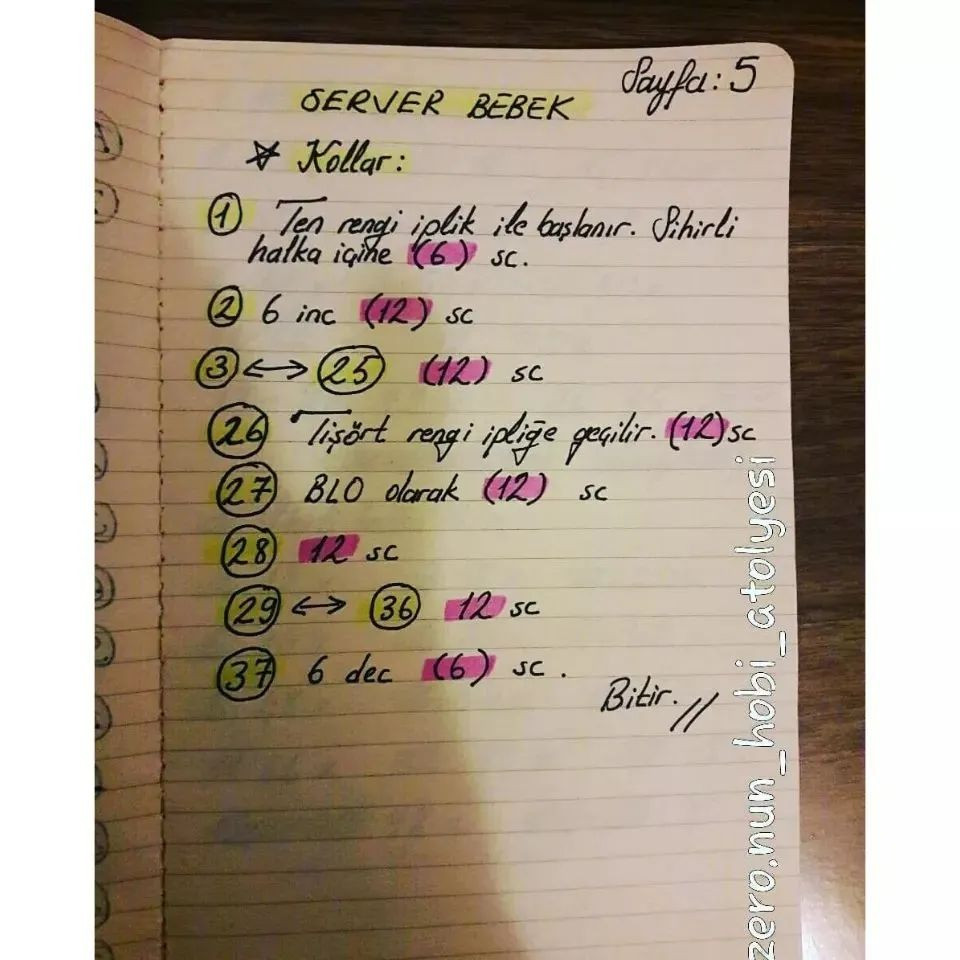 Sayfa: 5
SERVER BEBEK
☆ Kollar:
1 Ten rengi iplik ile başlanır. Sihirli
halka içine (6) sc.
2 6 inc (12) sc
3 ↔ 25 (12) sc
26 Tişört rengi ipliğe geçilir. (12) sc
27 BLO olarak (12) sc
28 12 sc
29 ↔ 36 12 sc
37 6 dec (6) sc.
Bitir. //
zero.nun_hobi_atolyesi